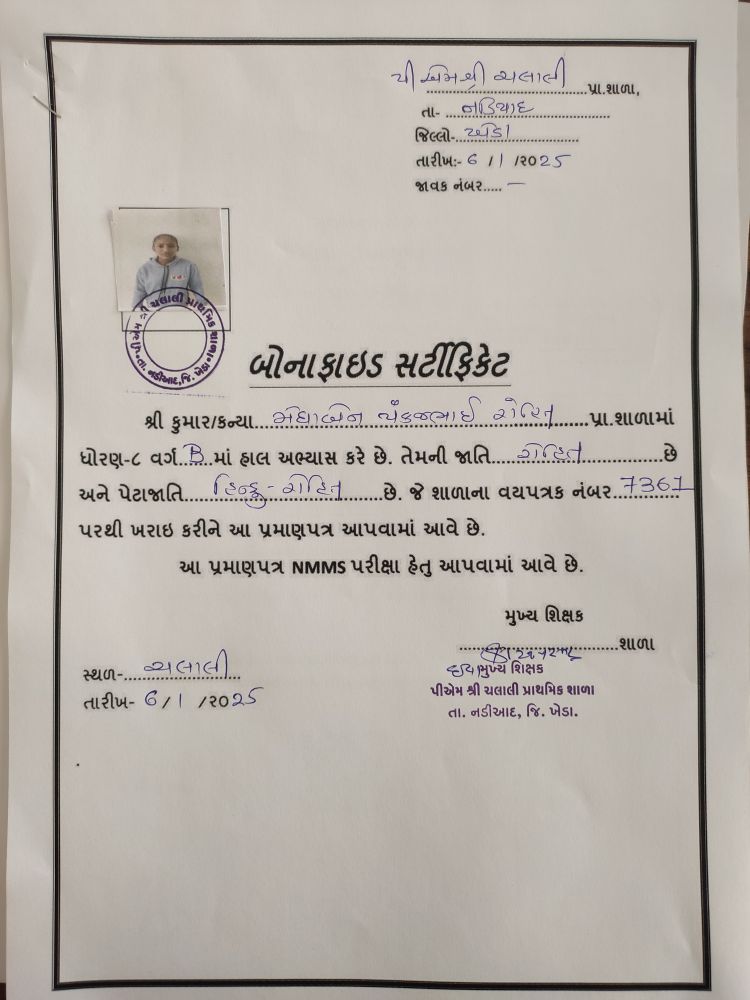 પી એમ શ્રી ચલાલી પ્રા.શાળા,
તા- નડિયાદ
જિલ્લો- ખેડા
તારીખઃ- 6 / 1 /૨૦25
જાવક નંબર..... –
પીએમ શ્રી ચલાલી પ્રાથમિક શાળા
તા. નડીઆદ, જિ. ખેડા
બોનાફાઇડ સર્ટીફિકેટ
શ્રી કુમાર/કન્યા મેઘાબેન પંકજભાઈ રોહિત પ્રા.શાળામાં
ધોરણ-૮ વર્ગ B માં હાલ અભ્યાસ કરે છે. તેમની જાતિ રોહિત છે
અને પેટાજાતિ હિન્દુ - રોહિત છે. જે શાળાના વયપત્રક નંબર 7361
પરથી ખરાઇ કરીને આ પ્રમાણપત્ર આપવામાં આવે છે.
આ પ્રમાણપત્ર NMMS પરીક્ષા હેતુ આપવામાં આવે છે.
મુખ્ય શિક્ષક
શાળા
મુખ્ય શિક્ષક
પીએમ શ્રી ચલાલી પ્રાથમિક શાળા
તા. નડીઆદ, જિ. ખેડા.
સ્થળ- ચલાલી
તારીખ- 6 / 1 /૨૦25